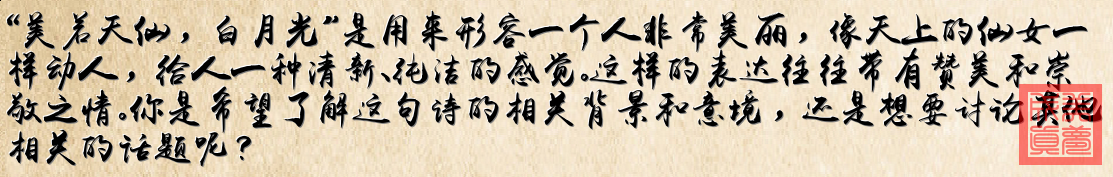 “美若天仙，白月光”是用来形容一个人非常美丽，像天上的仙女一
样动人，给人一种清新、纯洁的感觉。这样的表达往往带有赞美和崇
敬之情。你是希望了解这句诗的相关背景和意境，还是想要讨论其他
相关的话题呢？